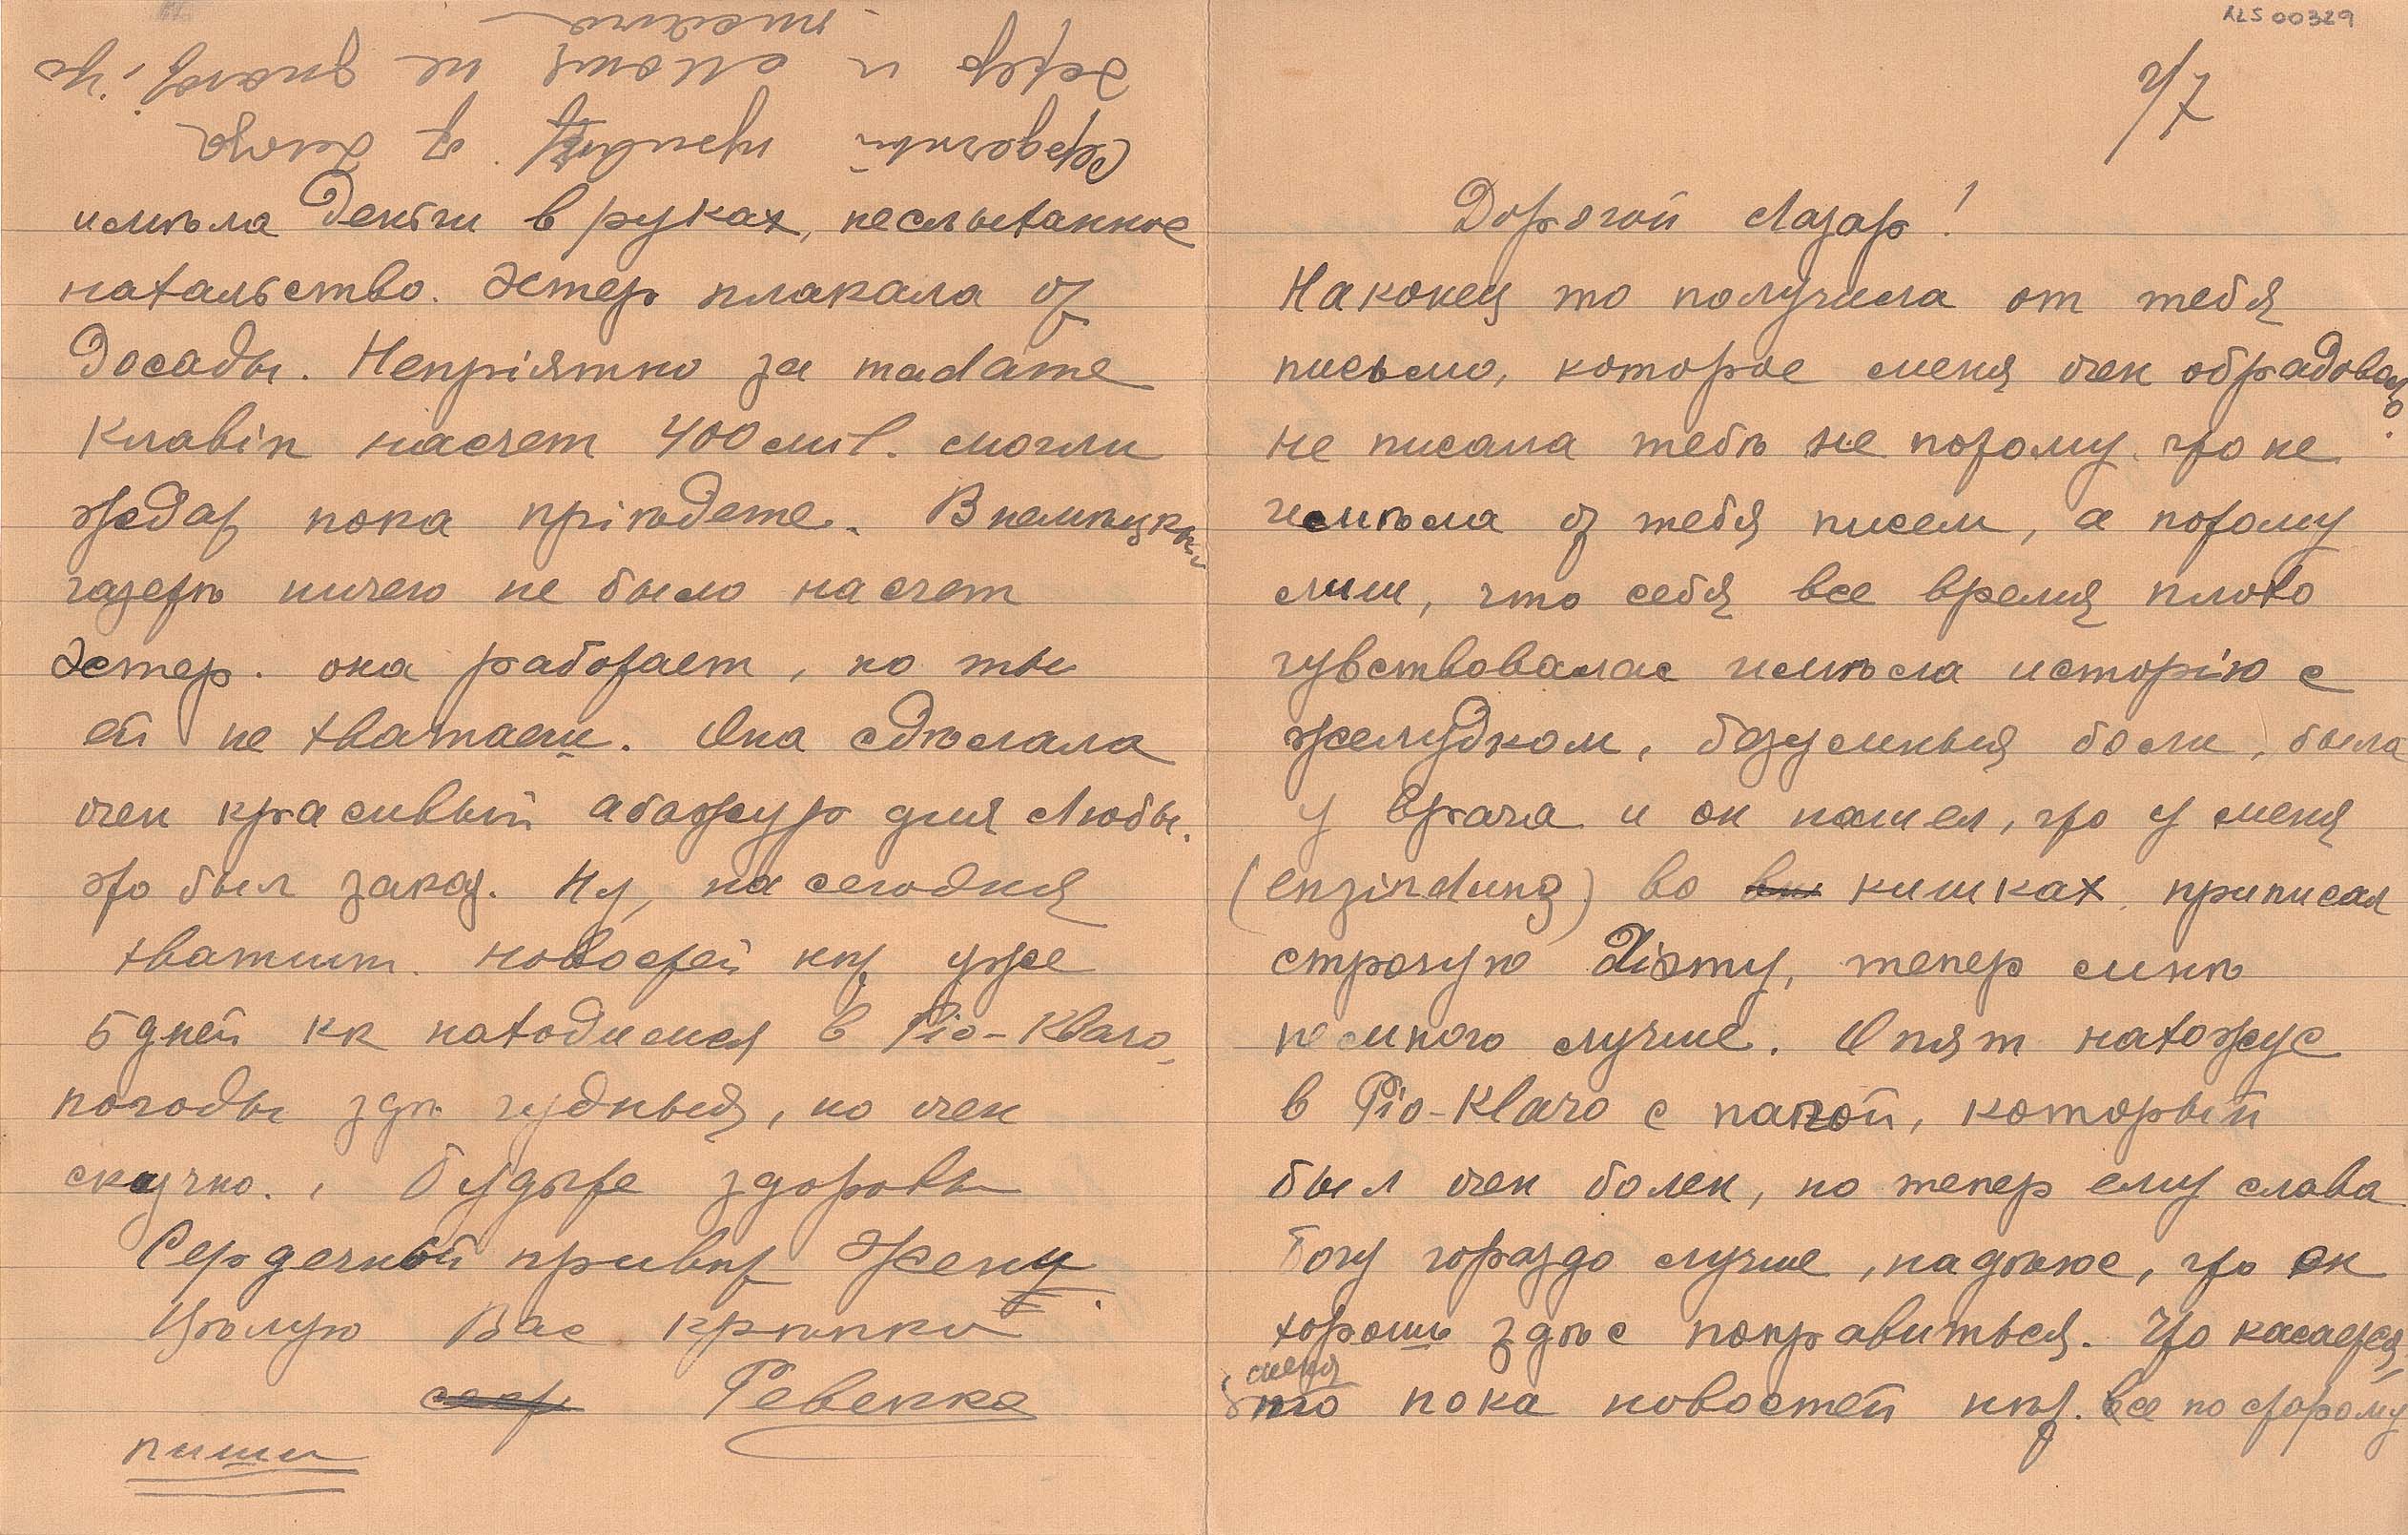 ALS 00329
2/7
Дорогой Лазар!
Наконец то получила от тебя
письмо, которое меня очен обрадовал
не писала тебѣ не потому что не
имѣла от тебя писем, а потому
лиш, что себя все время плохо
чувствовалас имѣла исторію с
желудком, безумныя боли, была
у врача и он нашел, что у меня
(enzindung) во кишках, приписал
строгую діэту, тепер мнѣ
немного лучше. Опят нахожус
в Рio-Кlaro с папой, который
был очен болен, но тепер ему слава
Богу гораздо лучше, надѣюс, что он
хорошь здѣс поправиться. Что касается
меня
то пока новостей нѣт. Все по старому
имѣла деньги в руках, неслыханное
нахальство. Эстер плакала от
досады. Непріятно за madame
Клавin насчет 400 mil. могли
ждат пока пріѣдете. В немѣцкой
газетѣ ничего не было насчет
Эстер. она работает, но ты
ей не хватаеш. Она сдѣлала
очен красивый абажур для Любы.
это был заказ. Ну, на сегодня
хватит. новостей нѣт уже
5 дней как находимся в Рio-Кlaro,
погоды здѣ чудныя, но очен
скучно. Будьте здоровы
Сердечный привѣт Жену.
Цѣлую Вас крѣпко
Ревекка
пиши
Сердечный привѣт от
и Моня не знают, что
писать